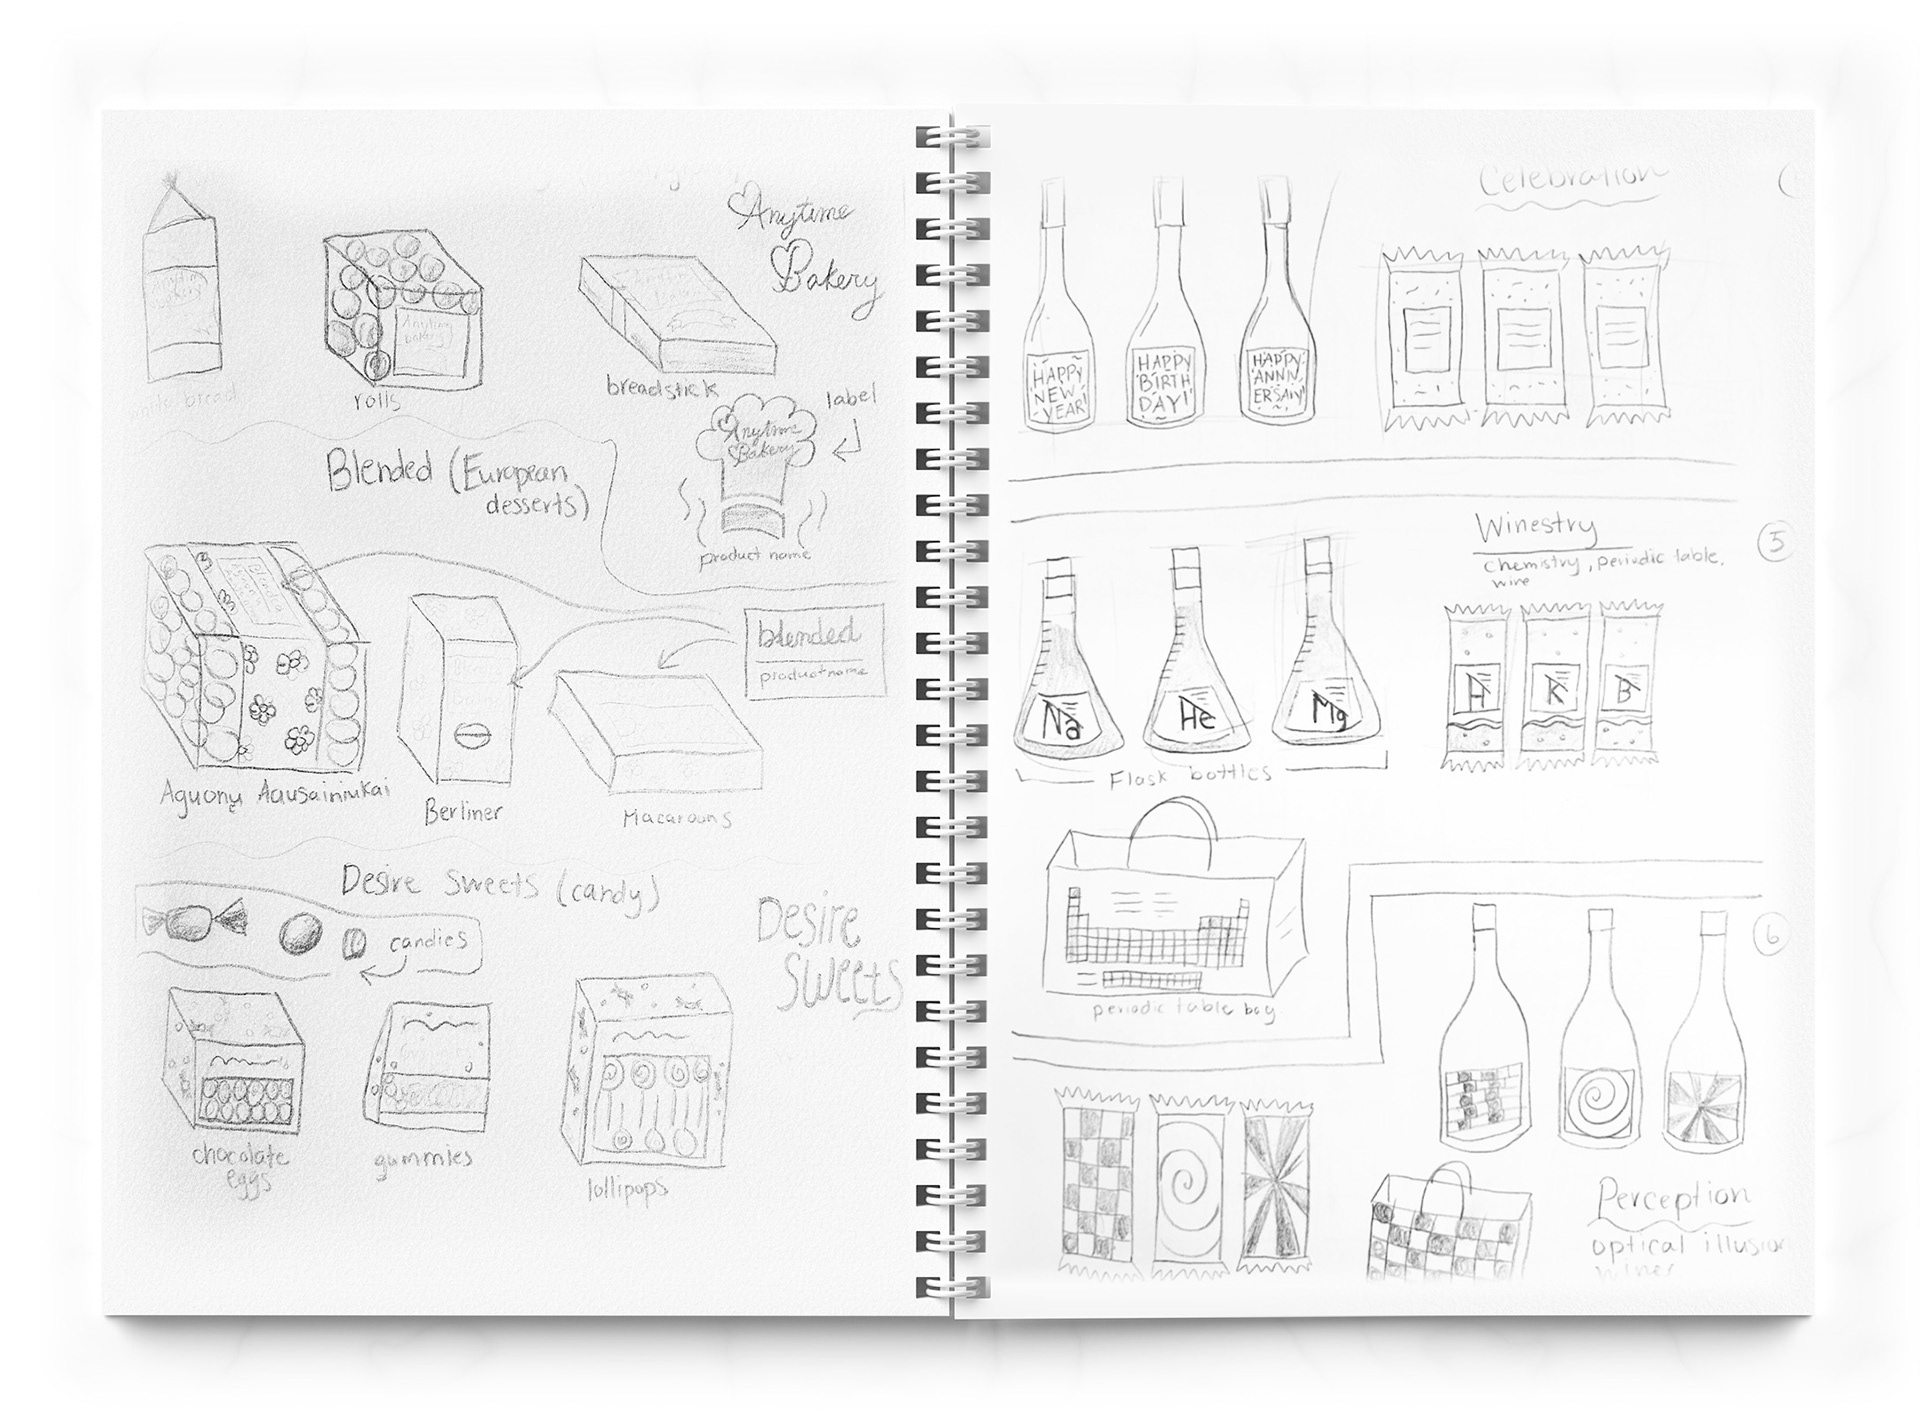 Anytime
Bakery
Anytime
bakery
bread
rolls
breadstick
label
Anytime
Bakery
product name
Blended (European
desserts)
blended
product name
Aguonų Aausainiukai
Berliner
Macaroons
Desire Sweets (candy)
candies
Desire
Sweets
chocolate
eggs
gummies
lollipops
Celebration
HAPPY
NEW
YEAR!
HAPPY
BIRTH
DAY!
HAPPY
ANNIV
ERSARY!
Winestry
5
chemistry, periodic table,
wine
Na
He
Mg
H
K
B
Flask bottles
periodic table bag
6
Perception
optical illusion
wines